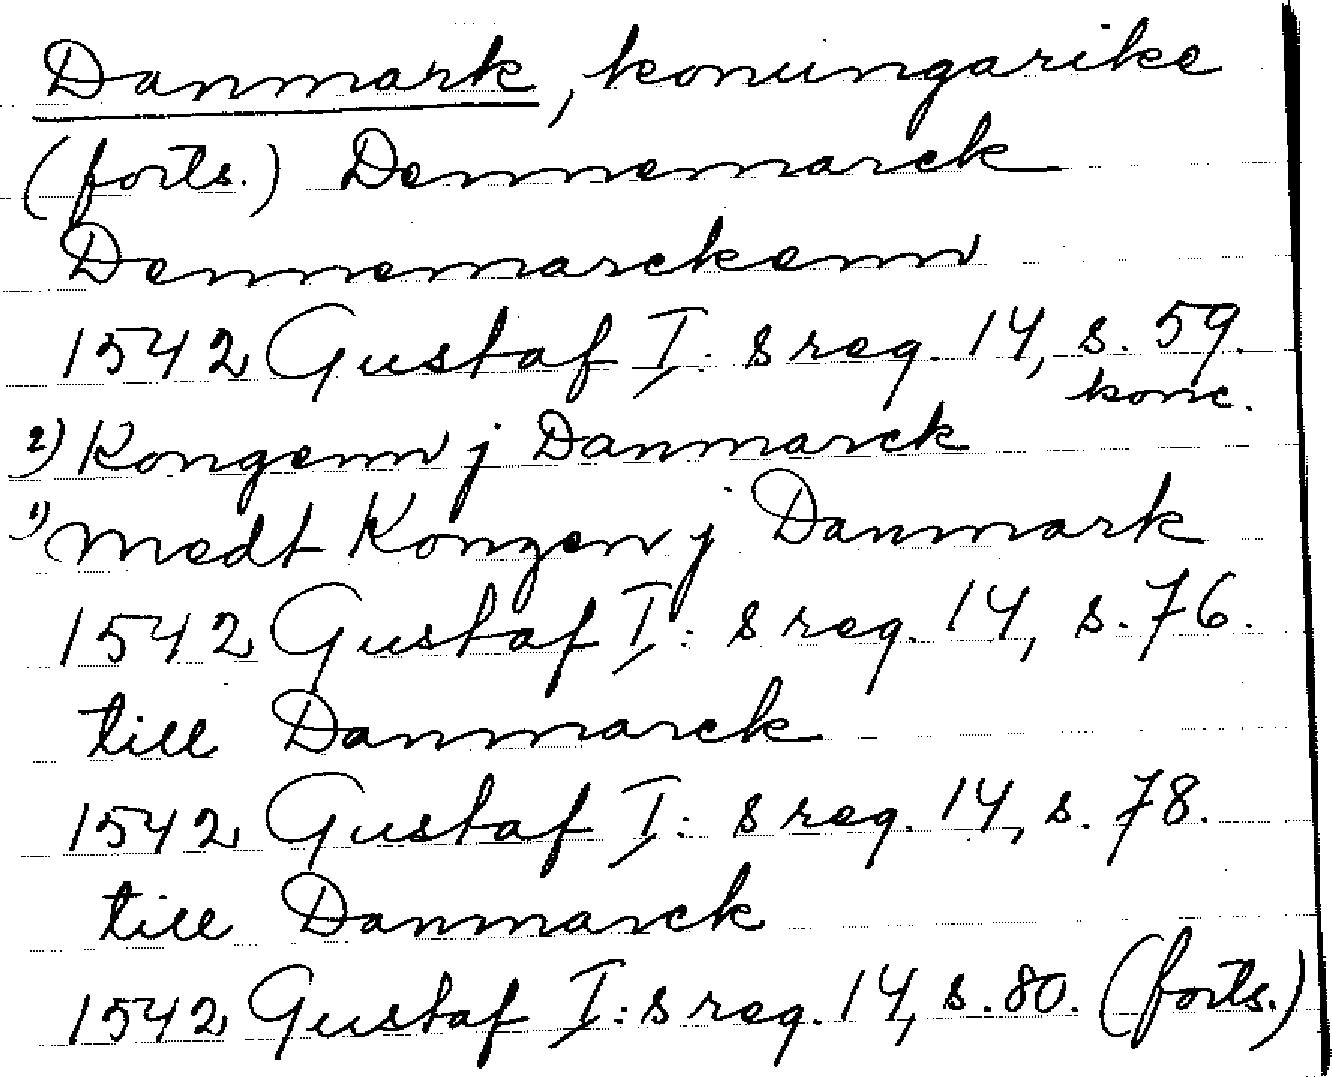 Danmark, konungarike
(forts.) Dennemarck
Dennemarckenn
1542 Gustaf I: s reg. 14, s. 59.
konc.
2) Kongenn j Danmarck
1) Medt Kongen j Danmark
1542 Gustaf I: s reg. 14, s. 76.
till Danmarck
1542 Gustaf I: s reg. 14, s. 78.
till Danmarck
1542 Gustaf I: s reg. 14, s. 80. (forts.)